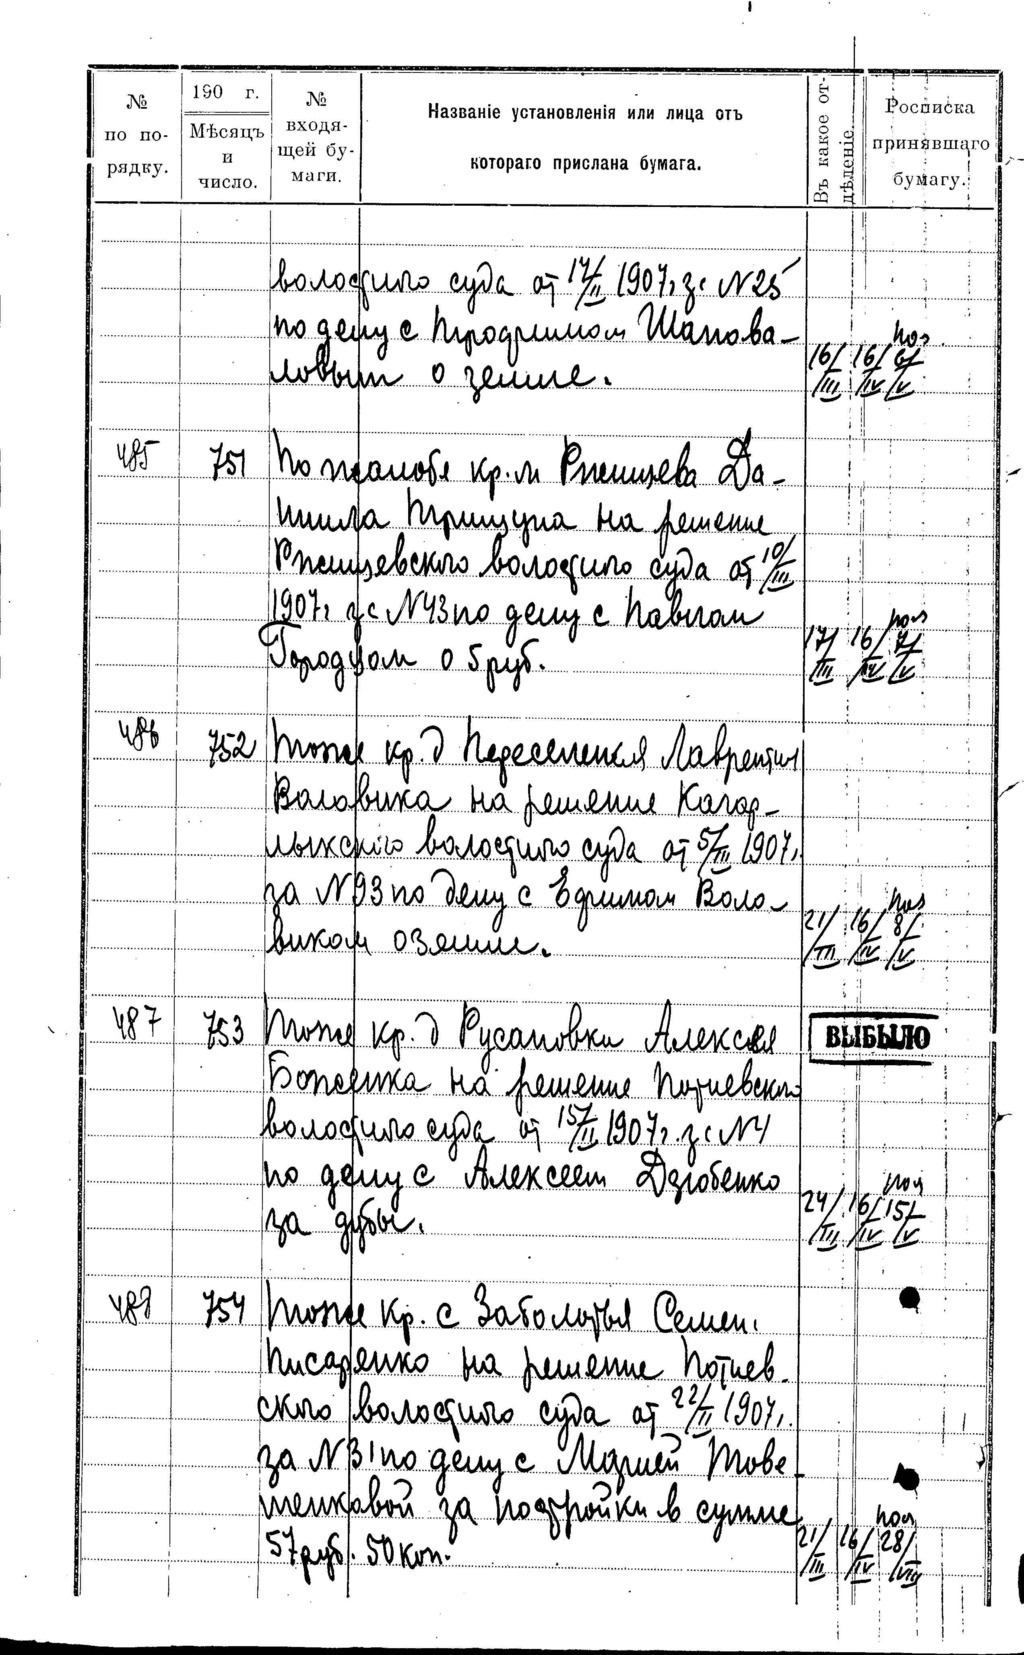 № по порядку.
190 г. Мѣсяцъ и число.
№ входящей бумаги.
Названіе установленія или лица отъ
котораго прислана бумага.
Въ какое отдѣленіе.
Росписка принявшаго бумагу.
волостного суда от 17/II 1907 г за N 25
по делу с Трофимом Шапова-
ловым о земле. 16/III 16/IV 6/V
485 751 По жалобе кр. м Ржищева Да-
нила Грицуна на решение
Ржищевского волостного суда от 10/III
1907 г за N 43 по делу с Павлом
о 5 руб. 17/III 16/IV 7/V
486 752 Тоже кр. д Переселення Лаврентия
Воловика на решение Кагар-
лыкского волостного суда от 5/III 1907 г.
за N 93 по делу с Ефимом Воло-
виком о земле. 21/III 16/IV 8/V
487 753 Тоже кр. д Русановки Алексея ВЫБЫЛО
Боженка на решение Потиевского
волостного суда от 15/II 1907 г. за N 4
по делу с Алексеем Дзюбенко
за дубы. 24/III 16/IV 15/V
488 754 Тоже кр. с Заболотья Семен.
Писаренко на решение Потиев-
ского волостного суда от 22/II 1907 г.
за N 31 по делу с Марией
за постройки в сумме
57 руб. 50 коп. 21/III 16/IV 28/VIII